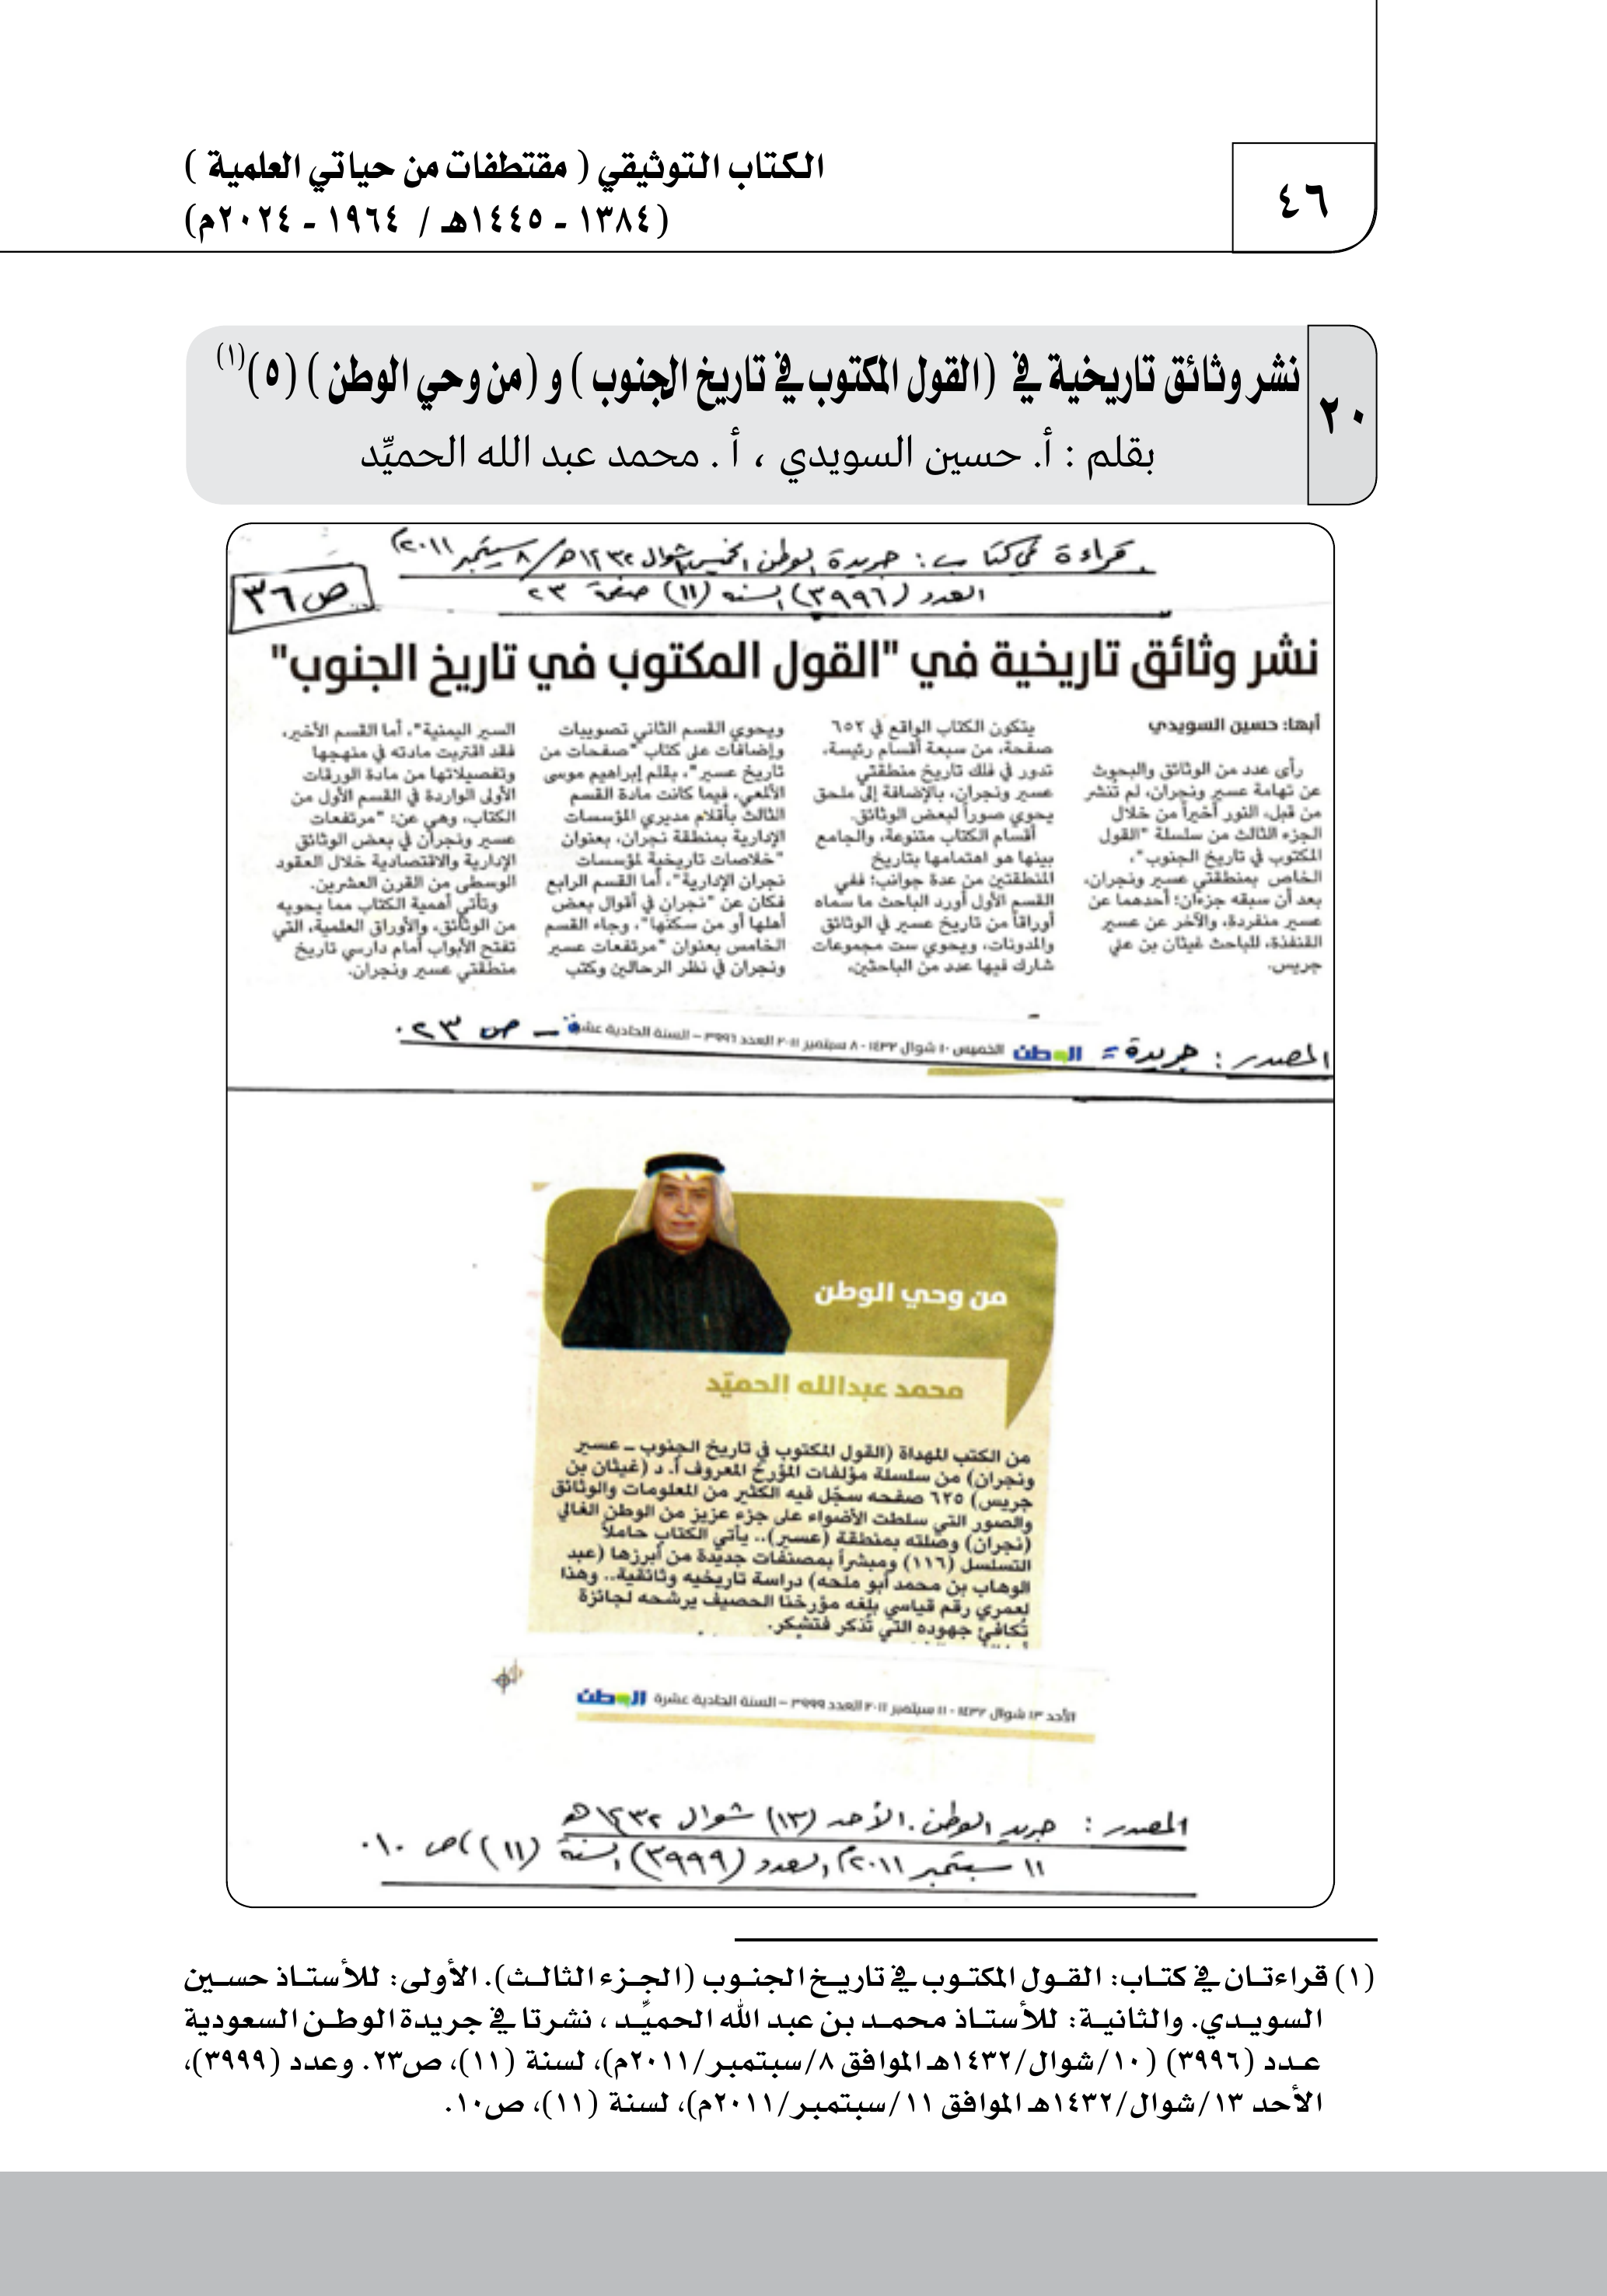 ٤٦
الكتاب التوثيقي ( مقتطفات من حياتي العلمية )
(١٣٨٤ - ١٤٤٥هـ / ١٩٦٤ - ٢٠٢٤م)
٢٠
نشر وثائق تاريخية في (القول المكتوب في تاريخ الجنوب ) و (من وحي الوطن ) (٥)(١)
بقلم : أ. حسين السويدي ، أ . محمد عبد الله الحميِّد
قراءة في كتاب : جريدة الوطن الخميس شوال ١٤٣٢هـ/٨ سبتمبر ٢٠١١م
العدد (٣٩٩٦) السنة (١١) صفحة ٢٣
ص٣٦
نشر وثائق تاريخية في "القول المكتوب في تاريخ الجنوب"
أبها: حسين السويدي
رأى عدد من الوثائق والبحوث
عن تهامة عسير ونجران، لم تُنشر
من قبل، النور أخيراً من خلال
الجزء الثالث من سلسلة "القول
المكتوب في تاريخ الجنوب"،
الخاص بمنطقتي عسير ونجران،
بعد أن سبقه جزءان؛ أحدهما عن
عسير منفردة، والآخر عن عسير
القنفذة، للباحث غيثان بن علي
جريس.
يتكون الكتاب الواقع في ٦٥٢
صفحة، من سبعة أقسام رئيسة،
تدور في فلك تاريخ منطقتي
عسير ونجران، بالإضافة إلى ملحق
يحوي صوراً لبعض الوثائق.
أقسام الكتاب متنوعة، والجامع
بينها هو اهتمامها بتاريخ
المنطقتين من عدة جوانب؛ ففي
القسم الأول أورد الباحث ما سماه
أوراقاً من تاريخ عسير في الوثائق
والمدونات، ويحوي ست مجموعات
شارك فيها عدد من الباحثين،
ويحوي القسم الثاني تصويبات
وإضافات على كتاب "صفحات من
تاريخ عسير"، بقلم إبراهيم موسى
الألمعي، فيما كانت مادة القسم
الثالث بأقلام مديري المؤسسات
الإدارية بمنطقة نجران، بعنوان
"خلاصات تاريخية لمؤسسات
نجران الإدارية"، أما القسم الرابع
فكان عن "نجران في أقوال بعض
أهلها أو من سكنها"، وجاء القسم
الخامس بعنوان "مرتفعات عسير
ونجران في نظر الرحالين وكتب
السير اليمنية"، أما القسم الأخير،
فقد اقتربت مادته في منهجها
وتفصيلاتها من مادة الورقات
الأولى الواردة في القسم الأول من
الكتاب، وهي عن: "مرتفعات
عسير ونجران في بعض الوثائق
الإدارية والاقتصادية خلال العقود
الوسطى من القرن العشرين.
وتأتي أهمية الكتاب مما يحويه
من الوثائق، والأوراق العلمية، التي
تفتح الأبواب أمام دارسي تاريخ
منطقتي عسير ونجران.
المصدر : جريدة = الوطن الخميس ١٠ شوال ١٤٣٢ - ٨ سبتمبر ٢٠١١ العدد ٣٩٩٦ – السنة الحادية عشرة – ص ٢٣.
من وحي الوطن
محمد عبدالله الحميّد
من الكتب المهداة (القول المكتوب في تاريخ الجنوب ــ عسير
ونجران) من سلسلة مؤلفات المؤرخ المعروف أ. د (غيثان بن
جريس) ٦٢٥ صفحه سجّل فيه الكثير من المعلومات والوثائق
والصور التي سلطت الأضواء على جزء عزيز من الوطن الغالي
(نجران) وصلته بمنطقة (عسير).. يأتي الكتاب حاملاً
التسلسل (١١٦) ومبشراً بمصنفات جديدة من أبرزها (عبد
الوهاب بن محمد أبو ملحه) دراسة تاريخيه وثائقية.. وهذا
لعمري رقم قياسي بلغه مؤرخنا الحصيف يرشحه لجائزة
تُكافئ جهوده التي تُذكر فتشكر.
الأحد ١٣ شوال ١٤٣٢ - ١١ سبتمبر ٢٠١١ العدد ٣٩٩٩ – السنة الحادية عشرة الوطن
المصدر : جريدة الوطن . الأحد (١٣) شوال ١٤٣٢هـ
١١ سبتمبر ٢٠١١م العدد (٣٩٩٩) السنة (١١) ص ١٠.
(١) قراءتان في كتاب: القول المكتوب في تاريخ الجنوب (الجزء الثالث). الأولى: للأستاذ حسين
السويدي. والثانية: للأستاذ محمد بن عبد الله الحميِّد ، نشرتا في جريدة الوطن السعودية
عدد (٣٩٩٦) (١٠/شوال/١٤٣٢هـ الموافق ٨/سبتمبر/٢٠١١م)، لسنة (١١)، ص٢٣. وعدد (٣٩٩٩)،
الأحد ١٣/شوال/١٤٣٢هـ الموافق ١١/سبتمبر/٢٠١١م)، لسنة (١١)، ص١٠.